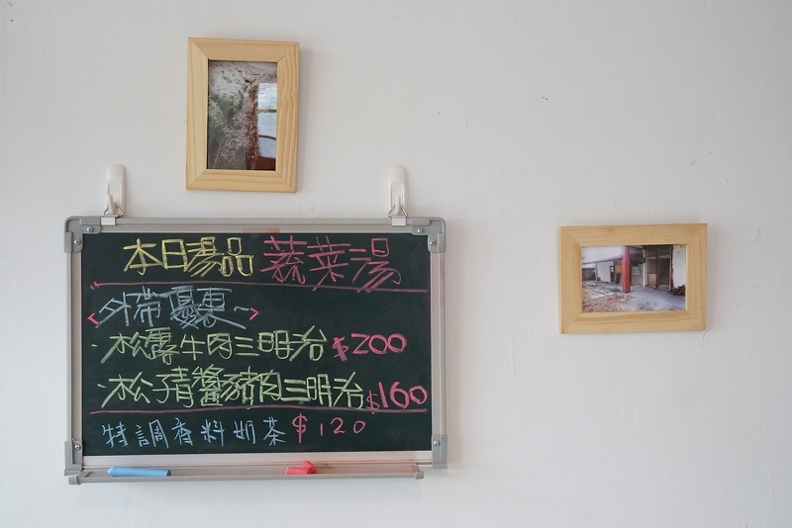 本日湯品 蔬菜湯
<外帶優惠~>
·松露牛肉三明治 $200
·松子青醬豬肉三明治 $160
特調香料奶茶 $120